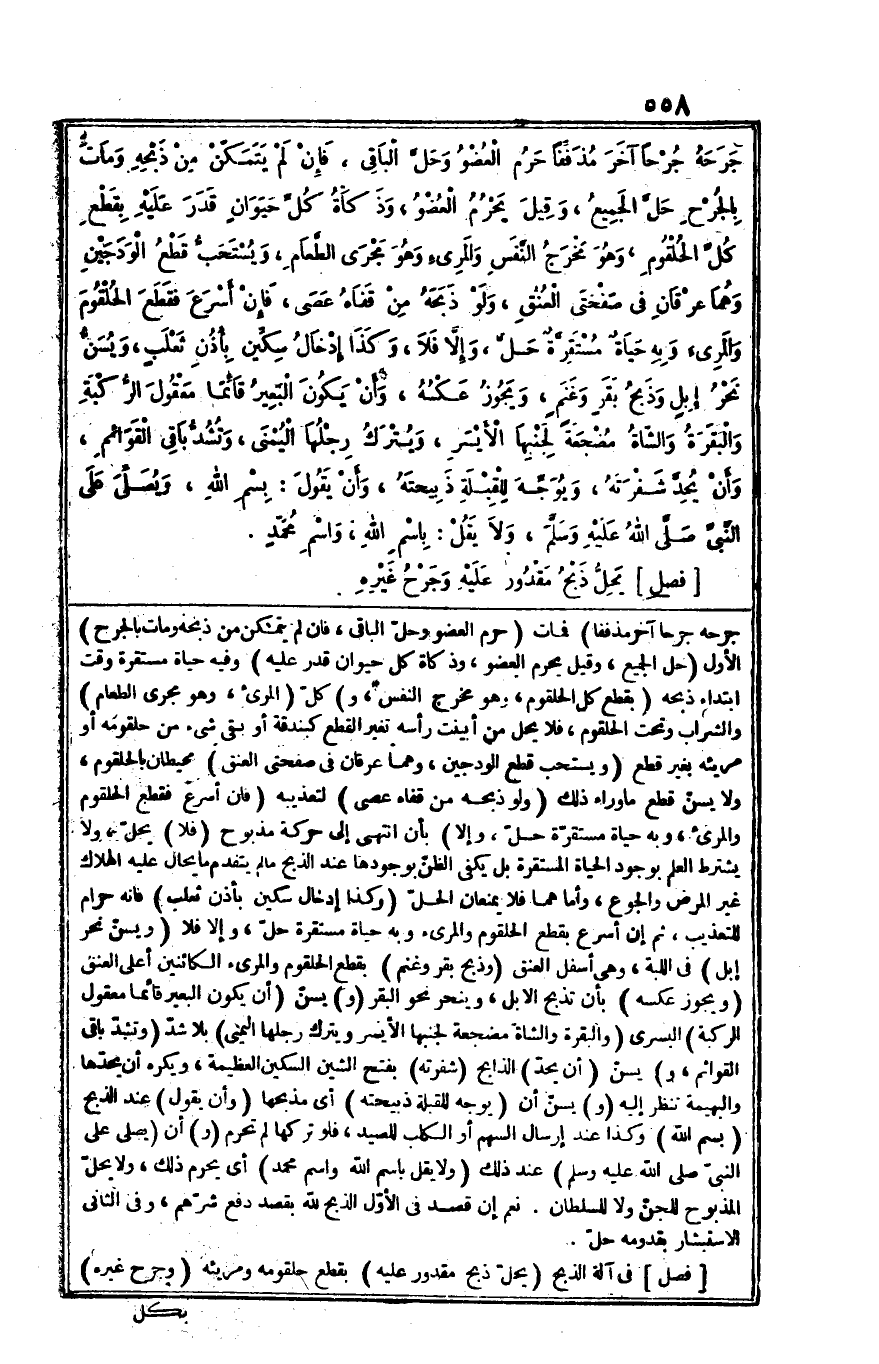 ٥٥٨
جَرَحَهُ جُرْحاً آخَرَ مُذَفِّفاً حَرُمَ الْعُضْوُ وَحَلَّ الْبَاقِي ، فَإِنْ لَمْ يَتَمَكَّنْ مِنْ ذَبْحِهِ وَمَاتَ
بِالْجُرْحِ حَلَّ الْجَمِيعُ ، وَقِيلَ يَحْرُمُ الْعُضْوُ ، وَذَكَاةُ كُلِّ حَيَوَانٍ قُدِرَ عَلَيْهِ بِقَطْعِ
كُلِّ الْحُلْقُومِ ، وَهُوَ مَخْرَجُ النَّفَسِ وَالْمَرِيءِ وَهُوَ مَجْرَى الطَّعَامِ ، وَيُسْتَحَبُّ قَطْعُ الْوَدَجَيْنِ
وَهُمَا عِرْقَانِ فِي صَفْحَتَيِ الْعُنُقِ ، وَلَوْ ذَبَحَهُ مِنْ قَفَاهُ عَصَى ، فَإِنْ أَسْرَعَ فَقَطَعَ الْحُلْقُومَ
وَالْمَرِيءَ وَبِهِ حَيَاةٌ مُسْتَقِرَّةٌ حَلَّ ، وَإِلَّا فَلاَ ، وَكَذَا إِدْخَالُ سِكِّينٍ بِأُذُنِ ثَعْلَبٍ ، وَيُسَنُّ
نَحْرُ إِبِلٍ وَذَبْحُ بَقَرٍ وَغَنَمٍ ، وَيَجُوزُ عَكْسُهُ ، وَأَنْ يَكُونَ الْبَعِيرُ قَائِمًا مَعْقُولَ الرُّكْبَةِ
وَالْبَقَرَةُ وَالشَّاةُ مُضْجَعَةً لِجَنْبِهَا الْأَيْسَرِ ، وَيُتْرَكُ رِجْلُهَا الْيُمْنَى ، وَتُشَدُّ بَاقِي الْقَوَائِمِ ،
وَأَنْ يُحِدَّ شَفْرَتَهُ ، وَيُوَجِّهَ لِلْقِبْلَةِ ذَبِيحَتَهُ ، وَأَنْ يَقُولَ : بِسْمِ اللهِ ، وَيُصَلِّيَ عَلَى
النَّبِيِّ صَلَّى اللهُ عَلَيْهِ وَسَلَّمَ ، وَلاَ يَقُلْ : بِاسْمِ اللهِ ، وَاسْمِ مُحَمَّدٍ .
[ فصل ] يَحِلُّ ذَبْحُ مَقْدُورٍ عَلَيْهِ وَجَرْحُ غَيْرِهِ
جرحه جرحا آخر مذففا ) فمات ( حرم العضو وحلّ الباقي ، فان لم يتمكن من ذبحه ومات بالجرح )
الأول ( حل الجميع ، وقيل يحرم العضو ، وذكاة كل حيوان قدر عليه ) وفيه حياة مستقرة وقت
ابتداء ذبحه ( بقطع كل الحلقوم ، وهو مخرج النفس ، و ) كلّ ( المرىء ، وهو مجرى الطعام )
والشراب وتحت الحلقوم ، فلا يحل من أبينت رأسه بغير القطع كبندقة أو بقي شيء من حلقومه أو
مريئه بغير قطع ( ويستحب قطع الودجين ، وهما عرقان في صفحتي العنق ) محيطان بالحلقوم ،
ولا يسنّ قطع ماوراء ذلك ( ولو ذبحه من قفاه عصى ) لتعذيبه ( فان أسرع فقطع الحلقوم
والمرىء ، وبه حياة مستقرّة حلّ ، وإلا ) بأن انتهى إلى حركة مذبوح ( فلا ) يحلّ ، ولا
يشترط العلم بوجود الحياة المستقرة بل يكفي الظنّ بوجودها عند الذبح مالم يتقدم مايحال عليه الهلاك
غير المرض والجوع ، وأما هما فلا يمنعان الحلّ ( وكذا إدخال سكين بأذن ثعلب ) فانه حرام
للتعذيب ، ثم إن أسرع بقطع الحلقوم والمرىء وبه حياة مستقرة حلّ ، وإلا فلا ( ويسنّ نحر
إبل ) في اللبة ، وهي أسفل العنق ( وذبح بقر وغنم ) بقطع الحلقوم والمرىء الكائنين أعلى العنق
( ويجوز عكسه ) بأن تذبح الابل ، وينحر نحو البقر ( و ) يسنّ ( أن يكون البعير قائما معقول
الركبة ) اليسرى ( والبقرة والشاة مضجعة لجنبها الأيسر ويترك رجلها اليمنى ) بلا شدّ ( وتشدّ باقي
القوائم ، و ) يسنّ ( أن يحدّ ) الذابح ( شفرته ) بفتح الشين السكين العظيمة ، ويكره أن يحدّها
والبهيمة تنظر إليه ( و ) يسنّ أن ( يوجه للقبلة ذبيحته ) أي مذبحها ( وأن يقول ) عند الذبح
( بسم الله ) وكذا عند إرسال السهم أو الكلب للصيد ، فلو تركها لم تحرم ( و ) أن ( يصلى على
النبيّ صلى الله عليه وسلم ) عند ذلك ( ولايقل باسم الله واسم محمد ) أي يحرم ذلك ، ولا يحلّ
المذبوح للجنّ ولا للسلطان . نعم إن قصد في الأوّل الذبح لله بقصد دفع شرّهم ، وفي الثاني
الاستبشار بقدومه حلّ .
[ فصل ] في آلة الذبح ( يحلّ ذبح مقدور عليه ) بقطع حلقومه ومريئه ( وجرح غيره )
بكل